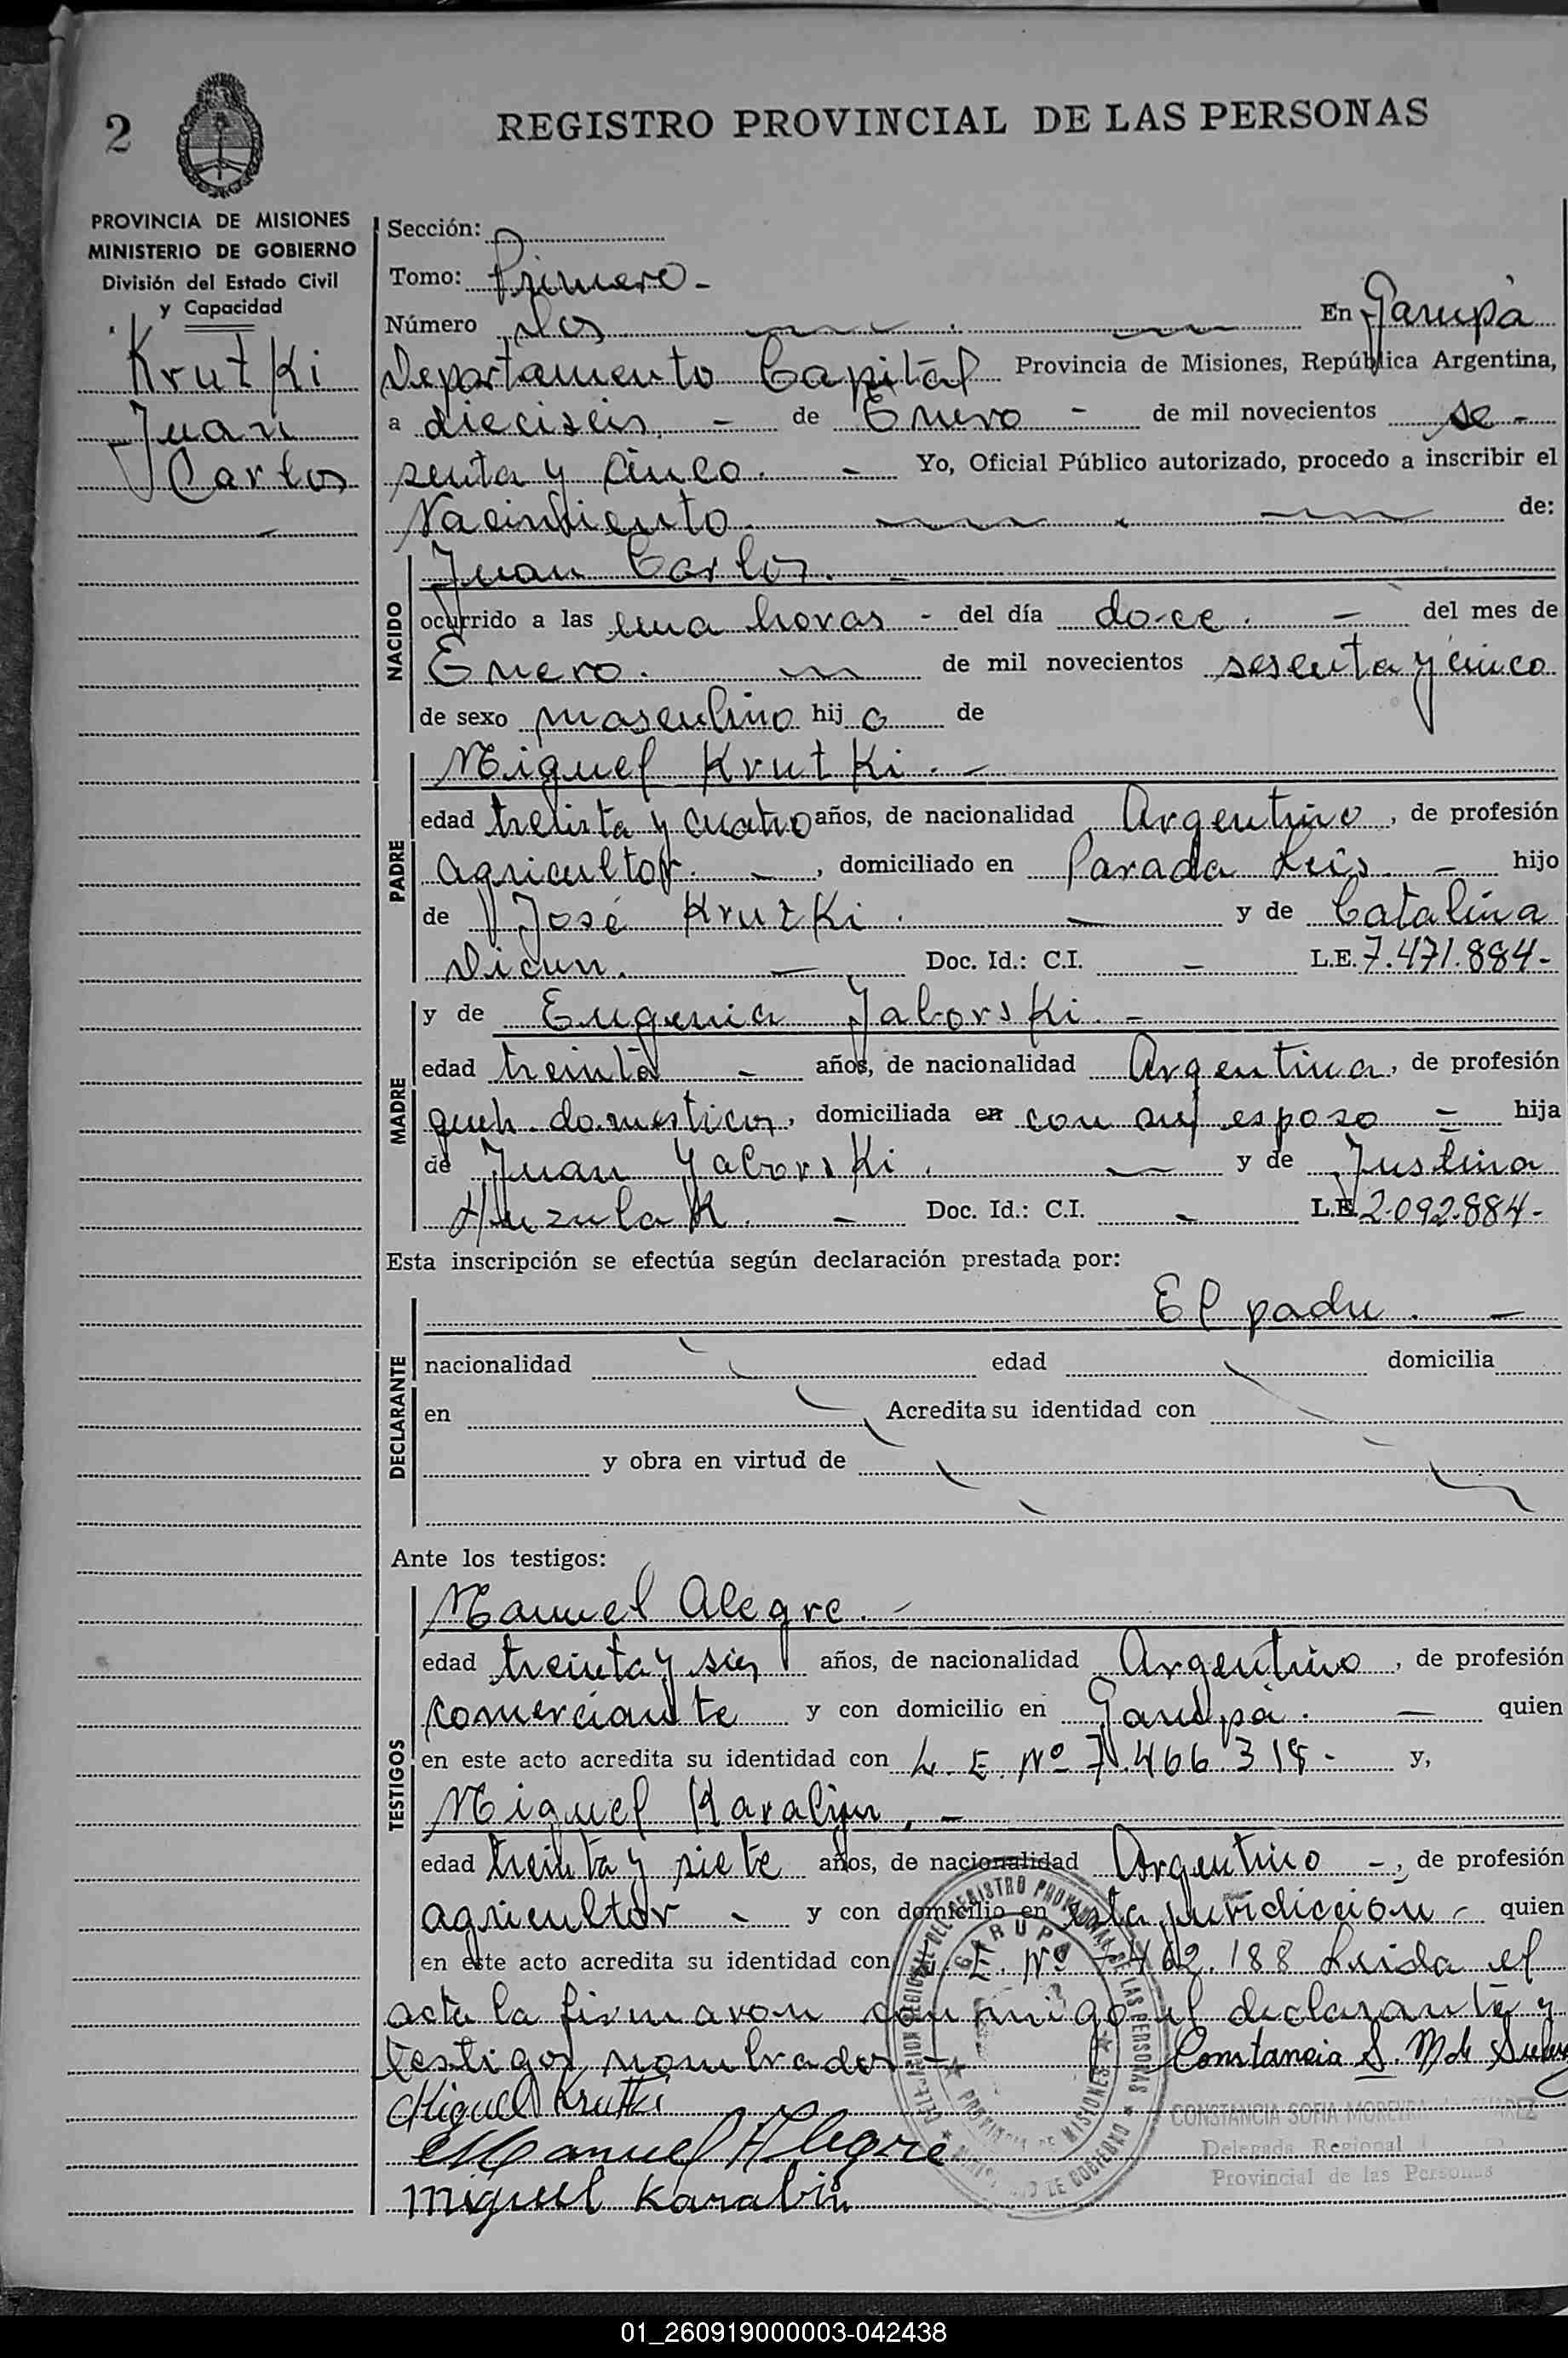 2
REGISTRO PROVINCIAL DE LAS PERSONAS
PROVINCIA DE MISIONES
MINISTERIO DE GOBIERNO
División del Estado Civil
y Capacidad
Krutki
Juan
Carlos
Sección:
Tomo: Primero -
Número dos En Garupá
Departamento Capital Provincia de Misiones, República Argentina,
a dieciseis - de Enero - de mil novecientos se-
senta y cinco. - Yo, Oficial Público autorizado, procedo a inscribir el
Nacimiento de:
NACIDO
Juan Carlos. -
ocurrido a las una horas - del día doce. - del mes de
Enero. de mil novecientos sesenta y cinco
de sexo masculino hijo de
PADRE
Miguel Krutki. -
edad treinta y cuatro años, de nacionalidad Argentino, de profesión
agricultor. -, domiciliado en Parada Leis. - hijo
de José Krutki. - y de Catalina
Dicun. - Doc. Id.: C.I. - L.E. 7.471.884-
MADRE
y de Eugenia Jaborski. -
edad treinta - años, de nacionalidad Argentina, de profesión
queh. domesticos, domiciliada en con su esposo - hija
de Juan Yaborski. - y de Justina
Huzulak. - Doc. Id.: C.I. - L.E. 2.092.884-
Esta inscripción se efectúa según declaración prestada por:
DECLARANTE
El padre. -
nacionalidad edad domicilia
en Acredita su identidad con
y obra en virtud de
Ante los testigos:
TESTIGOS
Manuel Alegre. -
edad treinta y seis años, de nacionalidad Argentino, de profesión
comerciante y con domicilio en Garupá. - quien
en este acto acredita su identidad con L. E. Nº 7.466.318- y,
Miguel Karabin, -
edad treinta y siete años, de nacionalidad Argentino -, de profesión
agricultor - y con domicilio en esta juridiccion - quien
en este acto acredita su identidad con L. E. Nº 7.462.188 Leida el
acta la firmaron conmigo el declarante y
testigos nombrados -
Constancia S. M de
Miguel Krutki
Manuel Alegre
Miguel Karabin
DELEGACION REGIONAL DEL REGISTRO PROVINCIAL DE LAS PERSONAS
GARUPA
PROVINCIA DE MISIONES
MINISTERIO DE GOBIERNO
CONSTANCIA SOFIA MOREYRA DE SUAREZ
Delegada Regional
Provincial de las Personas
01_260919000003-042438